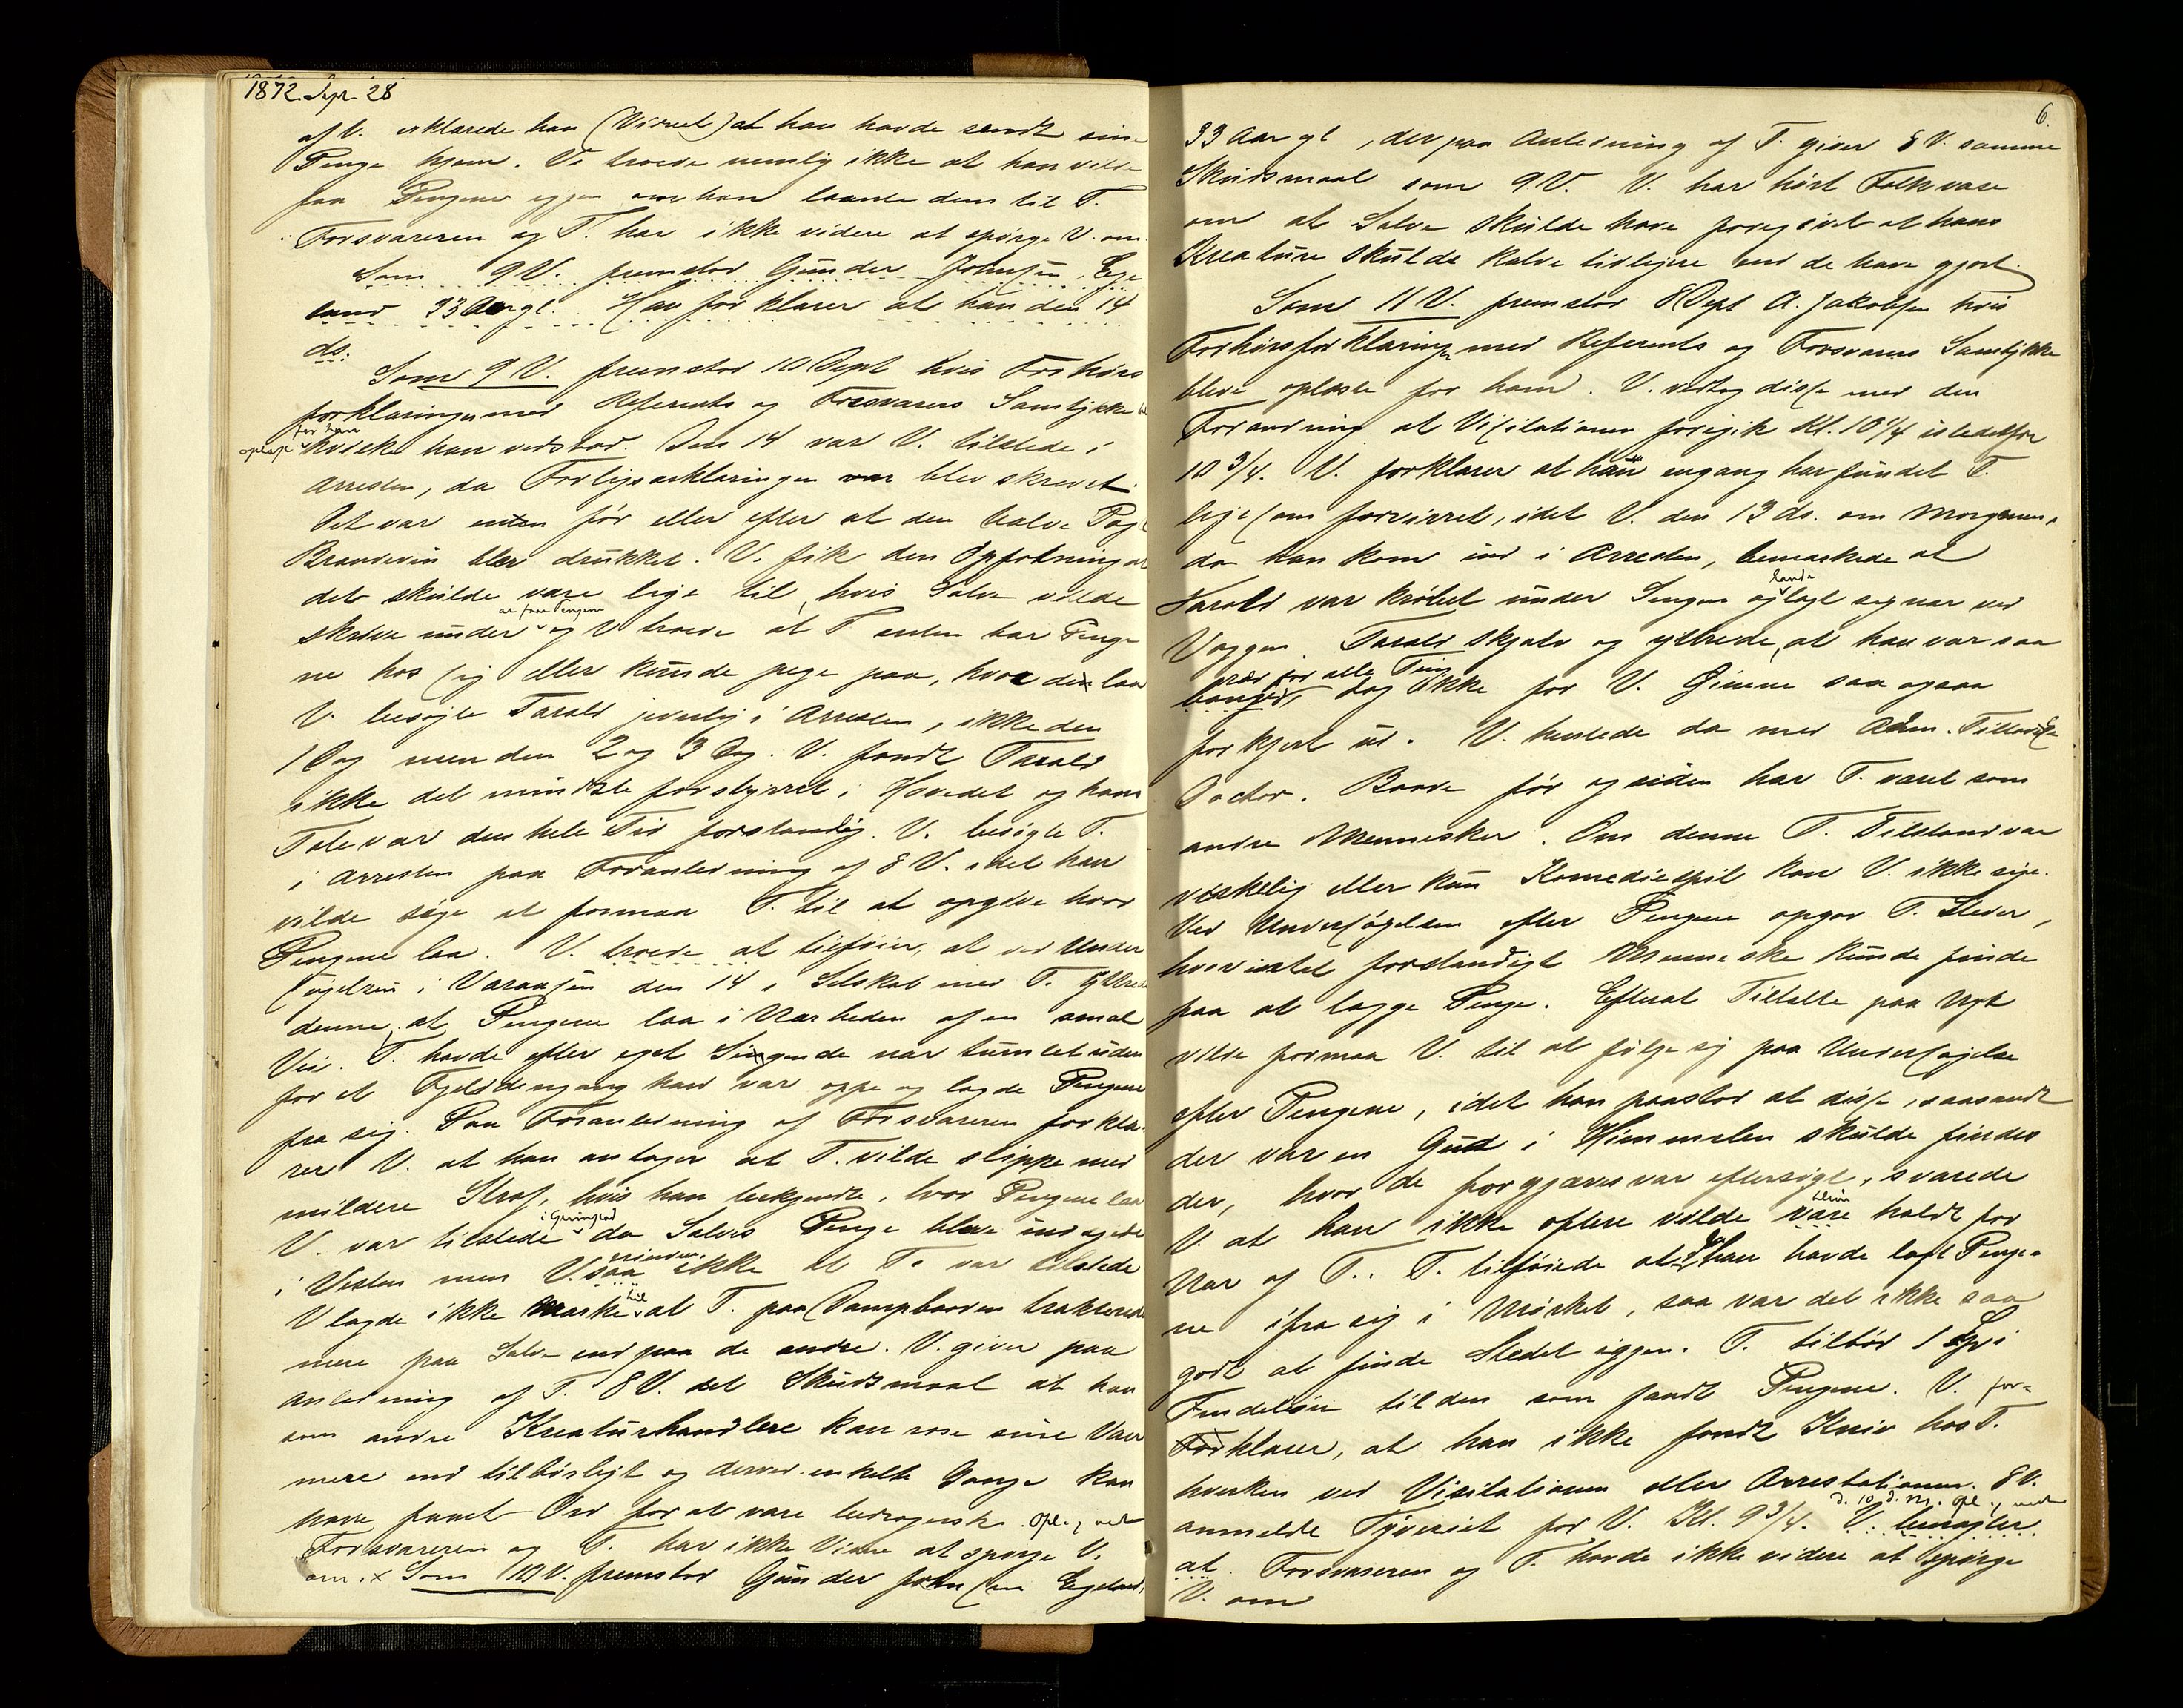 1872 Sept 28
af V. erklærede han (Vidnet) at han havde sendt sine
Penge hjem. Vi troede nemlig ikke at han vilde
faa Pengene igjen om han laante dem til T.
Forsvareren og T. har ikke videre at spørge V. om.
Som 9 V. fremstod Gunder Johnsen Ege
land 33 Aar gl. Han forklarer at han den 14
ds.
Som 9 V. fremstod 10 Dept hvis Forhørs
forklaringer med Referents og Forsvarers Samtykke
oplæst for ham hvilke han vedstod. Den 14 var V. tilstede i
Arresten, da Forligserklæringen var blev skrevet.
Det var enten før eller efter at den halve Pægl
Brændevin blev drukket. V. fik den Opfatning at
det skulde være lige til, hvis Salve vilde
skrive under at faa Pengene og V troede at T enten har Penge
ne hos sig eller kunde pege paa, hvor de laa
V. besøgte Tarald jevnlig i Arresten, ikke den
1 Dag men den 2 og 3 Dag. V. fandt Tarald
ikke det mindste forstyrret i Hovedet og hans
Tale var den hele Tid forstandig. V. besøgte T.
i Arresten paa Foranledning af 8 V. idet han
vilde søge at formaa T. til at opgive hvor
Pengene laa. V. troede at tilføier, at ved Under
søgelsen i Varaasen den 14 i Selskab med T. yttrede
denne, at Pengene laa i Nærheden af en smal
Vei. T. havde efter eget Sigende nær tumlet uden
for et Fjeld dengang han var oppe og lagde Pengene
fra sig. Paa Foranledning af Forsvareren forkla
rer V. at han antager at T. vilde slippe med
mildere Straf, hvis han bekjendte, hvor Pengene laa
V. var tilstede i Grimstad da Salves Penge blev indsyede
i Vesten men V. saa erindrer ikke at T. var tilstede
V lagde ikke Mærke til at T. paa Dampbaaden trakterede
mere paa Salve end paa de andre. V. giver paa
Anledning af T. 8 V. det Skudsmaal at han
som andre Kreaturhandlere kan rose sine Varer
mere end tilbørligt og derved enkelte Gange kan
have faaet Ord for at være bedragersk. Opl., vedt
Forsvareren og T. har ikke videre at spørge V.
om. x Som 10 V. fremstod Gunder Johnsen Egeland,
6.
33 Aar gl, der paa Anledning af T. giver 8 V. samme
Skudsmaal som 9 V. V. har hørt Folk være
om at Salve skulde have foregivet at hans
Kreature skulde kalve tidligere end de have gjort.
Som 11 V. fremstod 8 Dept A. Jakobsen hvis
Forhørsforklaringer med Referents og Forsvarers Samtykke
bleve oplæste for ham. V. vedtog disse med den
Forandring at Visitationen foregik Kl. 10 1/4 istedetfor
10 3/4. V. forklarer at han engang har fundet T.
ligesom forvirret, idet V. den 13 ds. om Morgenen,
da han kom ind i Arresten, bemærkede at
Tarald var krøbet under Sengen og havde lagt sig nær ved
Væggen. Tarald skjalv og yttrede, at han var saa
bange ræd for alle Ting, dog ikke for V. Øinene saa ogsaa
forkjert ud. V. hentede da med Adm. Tilladelse
Doctor. Baade før og siden har T. været som
andre Mennesker. Om denne T. Tilstand var
virkelig eller kun Komediespil kan V. ikke sige.
Ved Undersøgelsen efter Pengene opgav T. Steder,
hvor intet forstandigt Menneske kunde finde
paa at lægge Penge. Efterat Tiltalte paa Nyt
vilde formaa V. til at følge sig paa Undersøgelse
efter Pengene, idet han paastod at disse, saasandt
der var en Gud i Himmelen skulde findes
der, hvor de forgjæves var eftersøgt, svarede
V. at han ikke oftere vilde være blive holdt for
Nar af T.. T. tilføiede at han havde lagt Penge-
ne ifra sig i Mørket, saa var det ikke saa
godt at finde Stedet igjen. T. tilbød 1 Spd i
Findeløn til den som fandt Pengene. V. for-
Forklarer, at han ikke fandt Kniv hos T.
hverken ved Visitationen eller Arrestationen. 8 V.
anmeldte Tyveriet for V. Kl. 9 3/4. d. 10 d. M. Opl., vedt V. benægter
at. Forsvareren og T. havde ikke videre at spørge
V. om